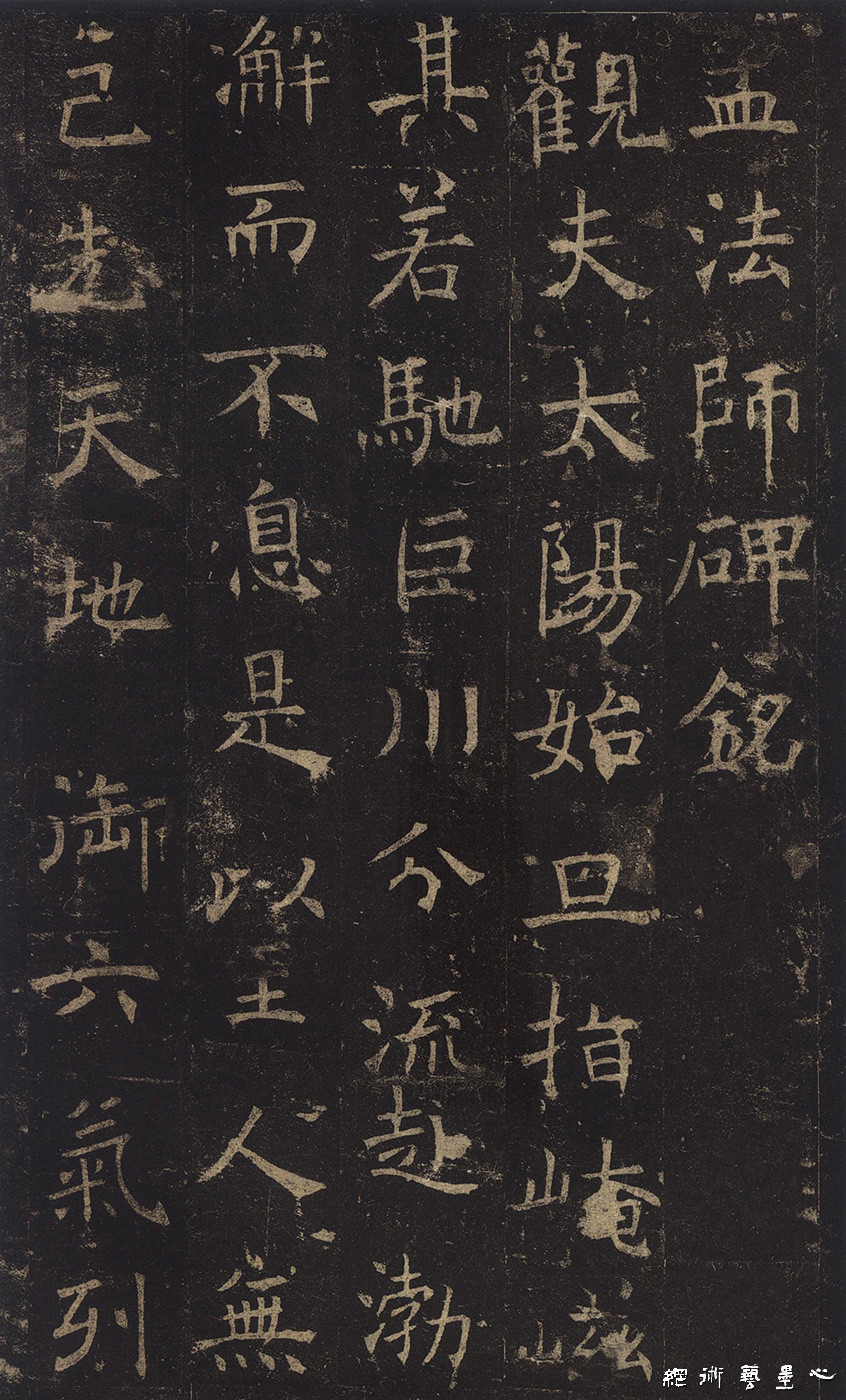 孟法師碑銘
觀夫太陽始旦指崦嵫
其若馳巨川分流赴渤
澥而不息是以至人無
己先天地御六氣列
心墨藝術網